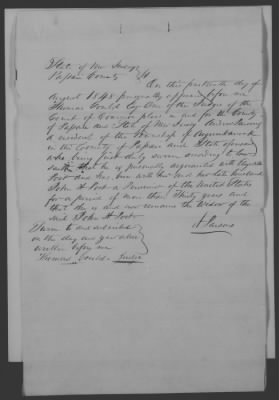 State of New Jersey
Passaic County SS
On this fourteenth day of
August 1848 personally appeared before me
Thomas Gould Esq One of the Judges of the
Court of Common pleas in and for the County
of Passaic and State of New Jersey
a resident of the Township of Acquackanonk
in the County of Passaic and State aforesaid
who being first duly sworn according to law
saith that he is personally acquainted with Elizabeth
Post and has been with her and her late husband
John H Post a Pensioner of the United States
for a period of more than thirty years and
that she is and now remains the Widow of the
said John H Post
Sworn to and subscribed
on the day and year above
written before me
Thomas Gould Judge